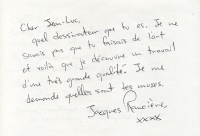 Cher Jean-Luc,
quel dessinateur que tu es. Je ne
savais pas que tu faisais de l'art
et voilà que je découvre un travail
d'une très grande qualité. Je me
demande quelles sont tes muses.
Jacques Rancière
xxxx